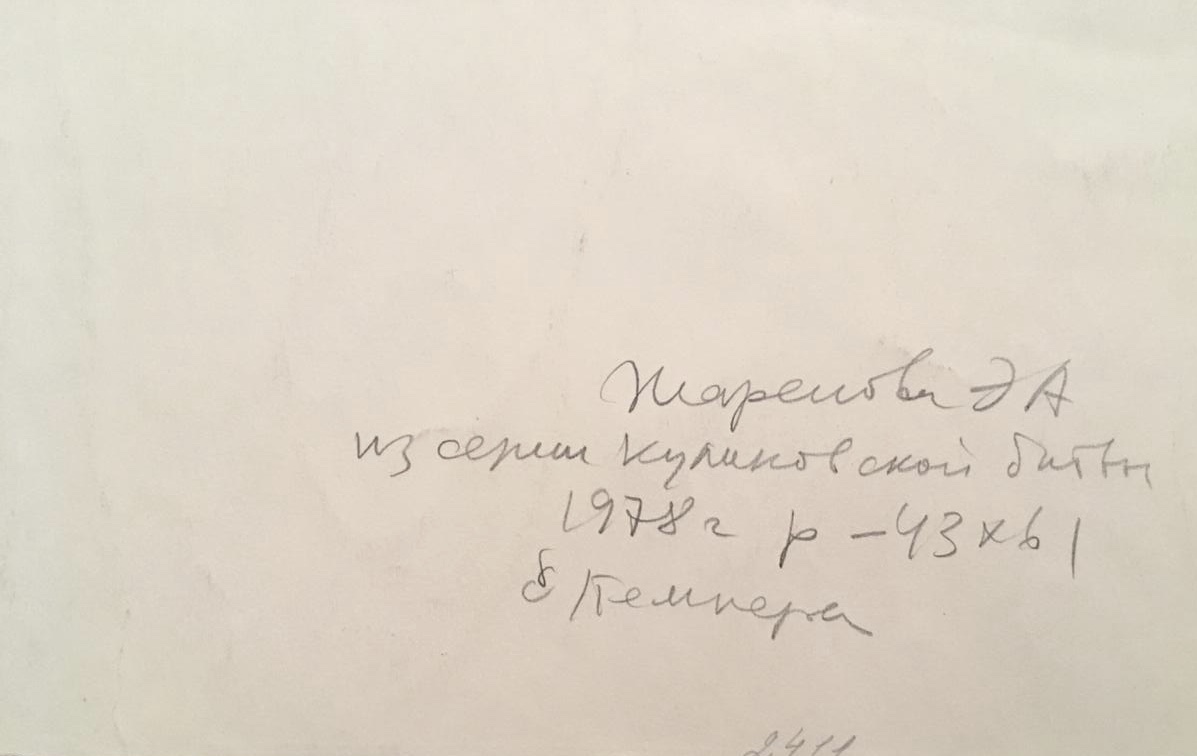 Жаренова Э А
из серии Куликовской битвы
1978 г р - 43 х 61
б/темпера